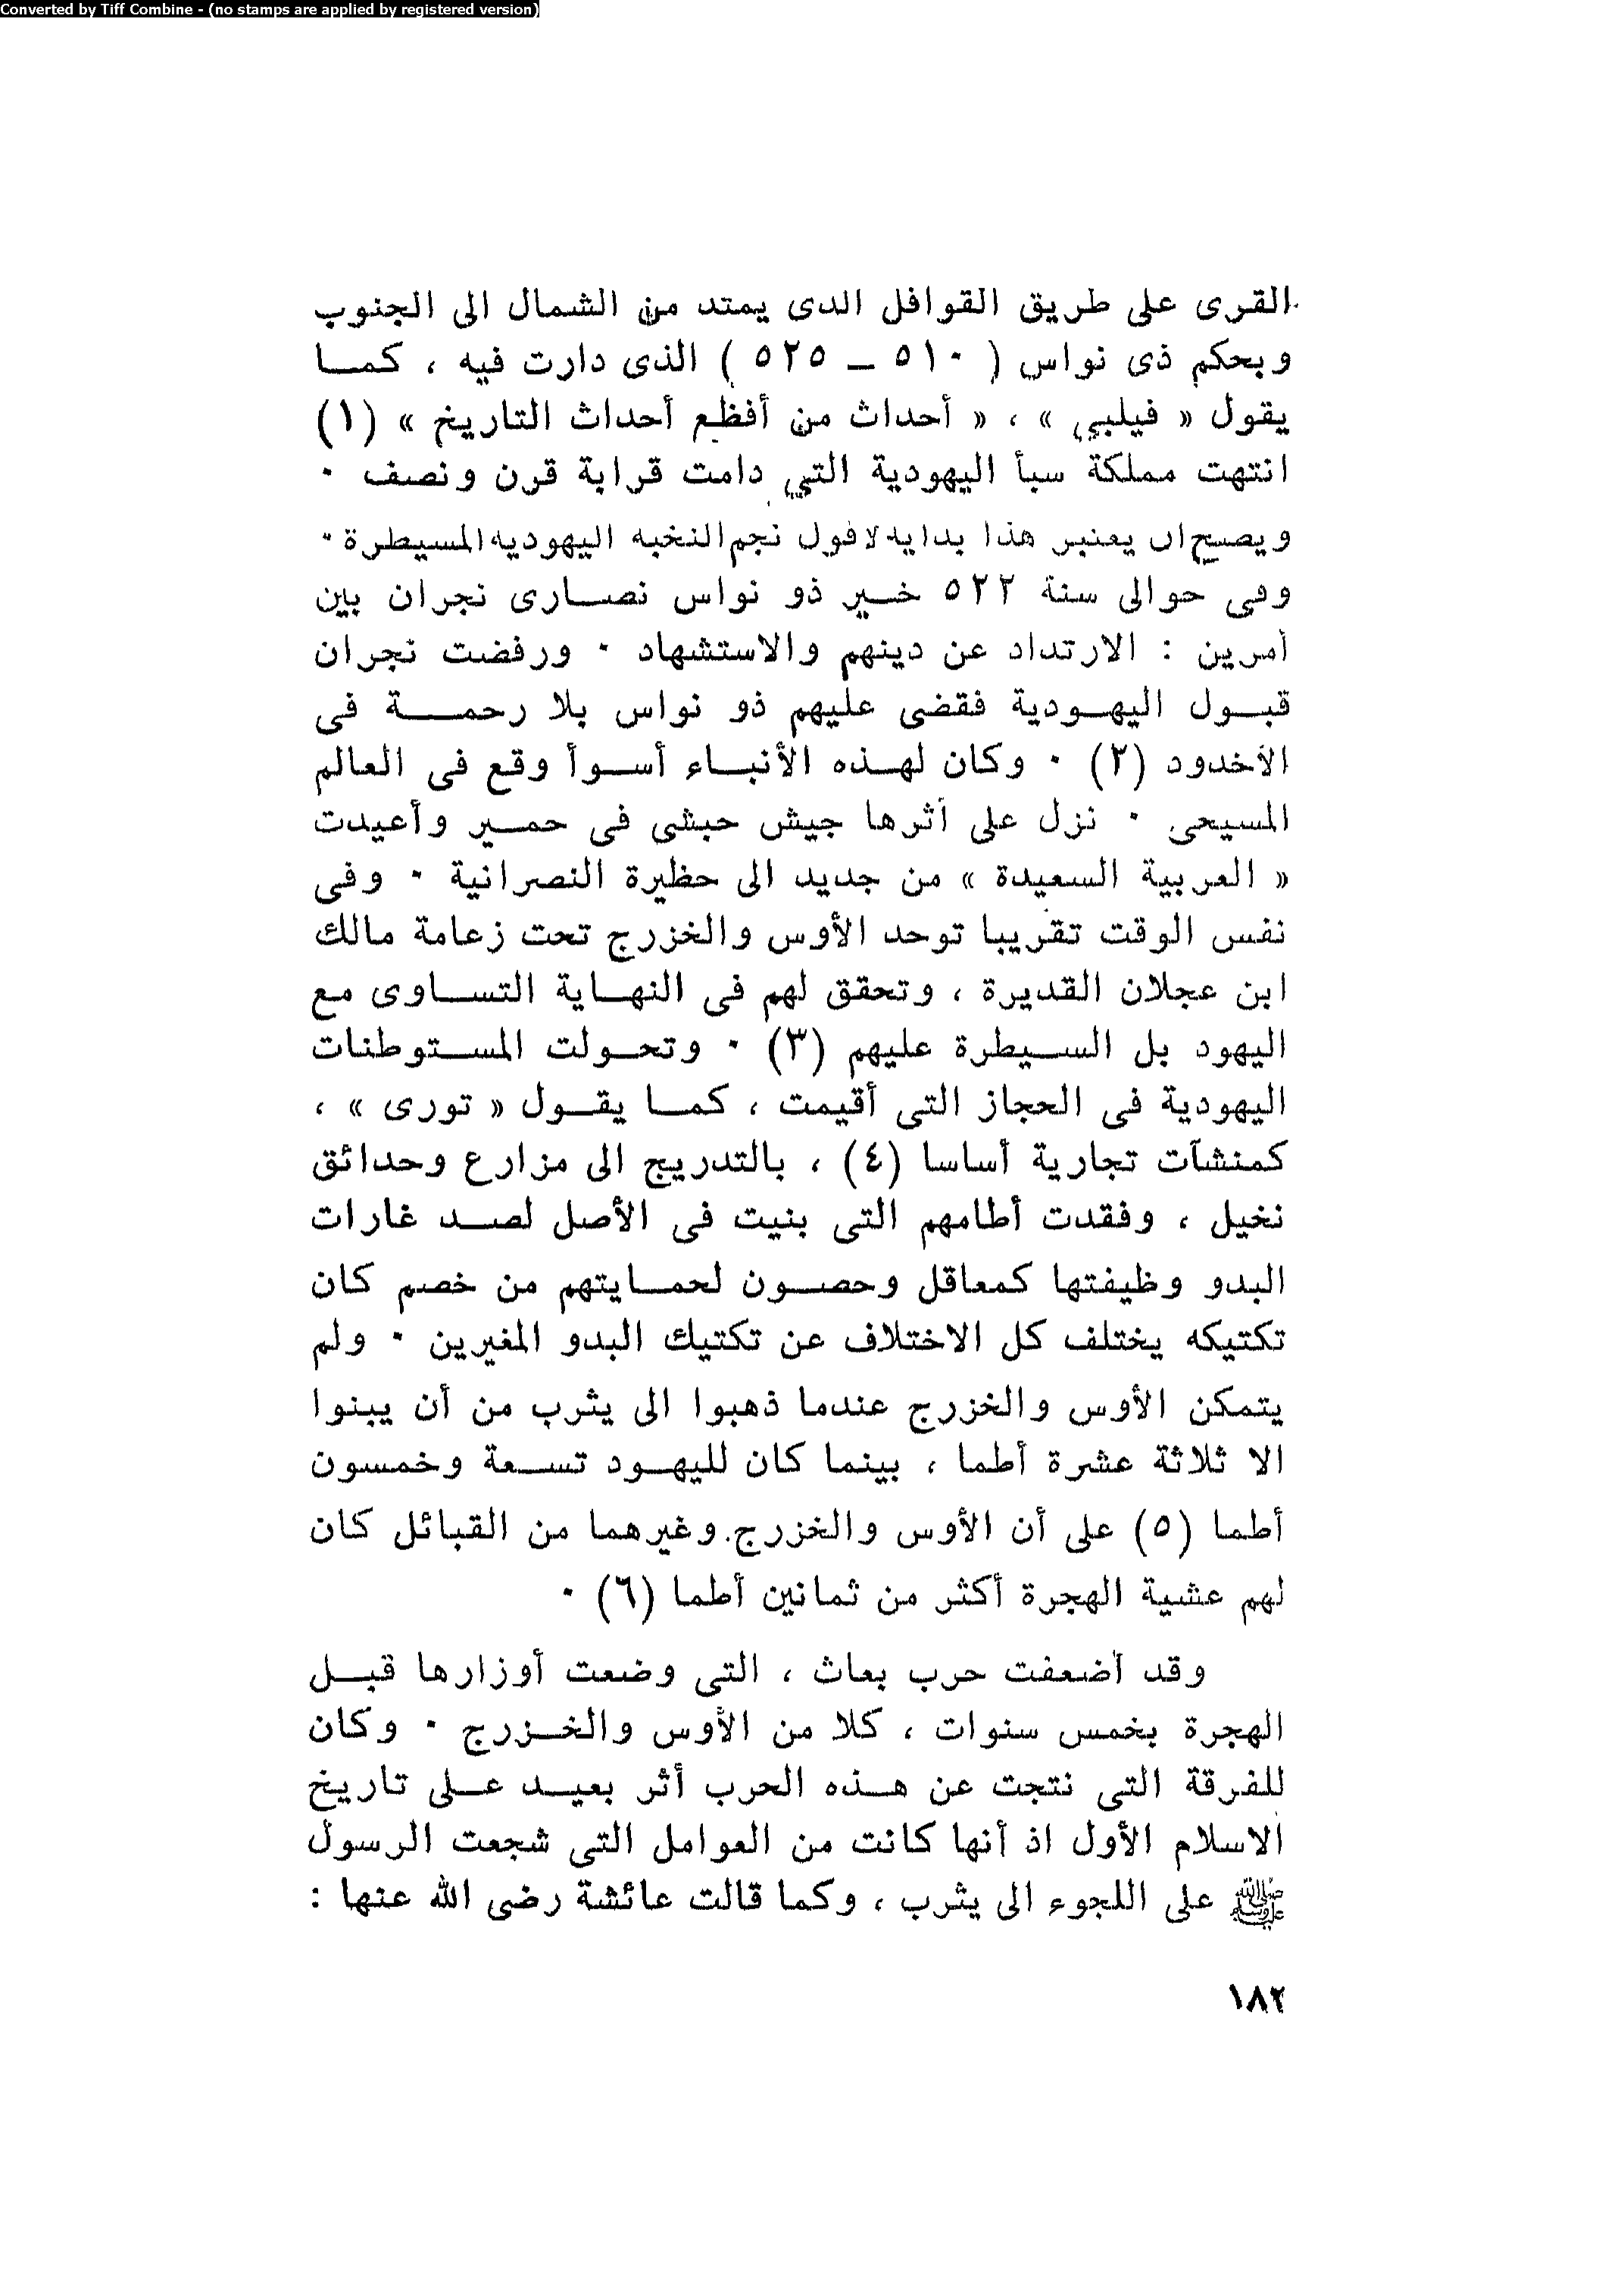 Converted by Tiff Combine - (no stamps are applied by registered version)
القرى على طريق القوافل الذى يمتد من الشمال الى الجنوب
وبحكم ذى نواس ( ٥١٠ ـ ٥٢٥ ) الذى دارت فيه ، كمـا
يقول « فيلبي » ، « أحداث من أفظع أحداث التاريخ » (١)
انتهت مملكة سبأ اليهودية التي دامت قرابة قرن ونصف ٠
ويصح ان يعتبر هذا بداية لافول نجم النخبة اليهودية المسيطرة ٠
وفى حوالى سنة ٥٢٢ خـير ذو نواس نصـارى نجران بين
أمرين : الارتداد عن دينهم والاستشهاد ٠ ورفضت نجران
قبـول اليهـودية فقضى عليهم ذو نواس بلا رحمـة فى
الأخدود (٢) ٠ وكان لهـذه الأنبـاء أسـوأ وقع فى العالم
المسيحى ٠ نزل على أثرها جيش حبشى فى حمـير وأعيدت
« العربية السعيدة » من جديد الى حظيرة النصرانية ٠ وفى
نفس الوقت تقريبا توحد الأوس والخزرج تحت زعامة مالك
ابن عجلان القديرة ، وتحقق لهم فى النهـاية التسـاوى مع
اليهود بل السـيطرة عليهم (٣) ٠ وتحـولت المسـتوطنات
اليهودية فى الحجاز التى أقيمت ، كمـا يقـول « تورى » ،
كمنشآت تجارية أساسا (٤) ، بالتدريج الى مزارع وحدائق
نخيل ، وفقدت أطامهم التى بنيت فى الأصل لصـد غارات
البدو وظيفتها كمعاقل وحصـون لحمـايتهم من خصم كان
تكتيكه يختلف كل الاختلاف عن تكتيك البدو المغيرين ٠ ولم
يتمكن الأوس والخزرج عندما ذهبوا الى يثرب من أن يبنوا
الا ثلاثة عشرة أطما ، بينما كان لليهـود تسـعة وخمسون
أطما (٥) على أن الأوس والخزرج وغيرهما من القبائل كان
لهم عشية الهجرة أكثر من ثمانين أطما (٦) ٠
وقد أضعفت حرب بعاث ، التى وضعت أوزارها قبـل
الهجرة بخمس سنوات ، كلا من الأوس والخـزرج ٠ وكان
للفرقة التى نتجت عن هـذه الحرب أثر بعيـد عـلى تاريخ
الاسلام الأول اذ أنها كانت من العوامل التى شجعت الرسول
ﷺ على اللجوء الى يثرب ، وكما قالت عائشة رضى الله عنها :
١٨٢